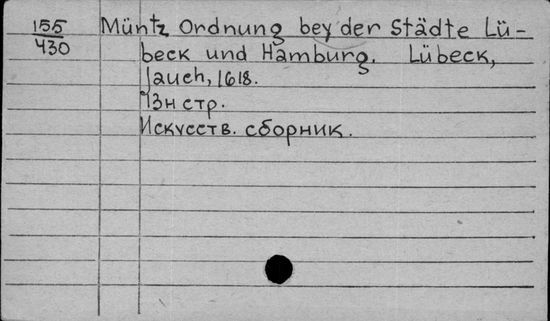 155
430
Müntz Ordnung bey der Städte Lü-
beck und Hamburg. Lübeck,
Jauch, 1618.
43н стр.
Искусств. сборник.